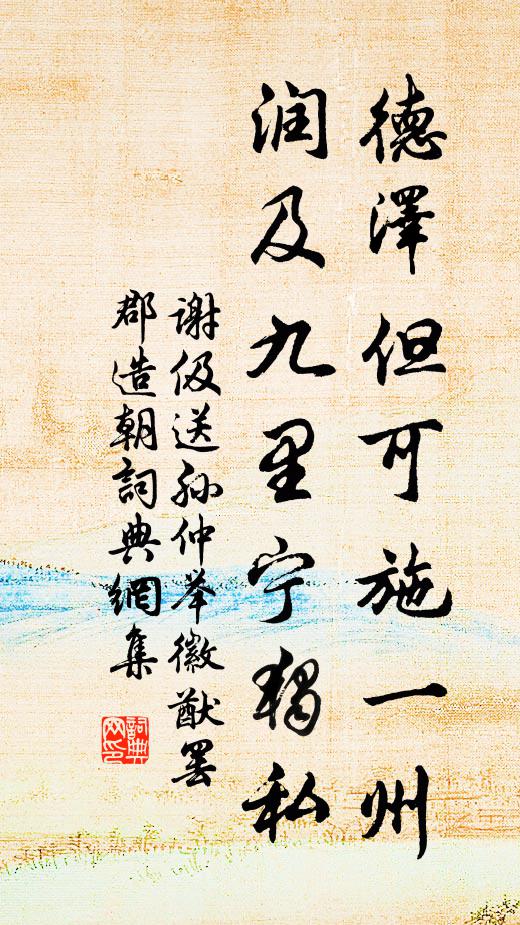 德泽但可施一州
润及九里宁独私
谢伋送孙仲举徽猷罢
郡造朝词典網集
詞典網印